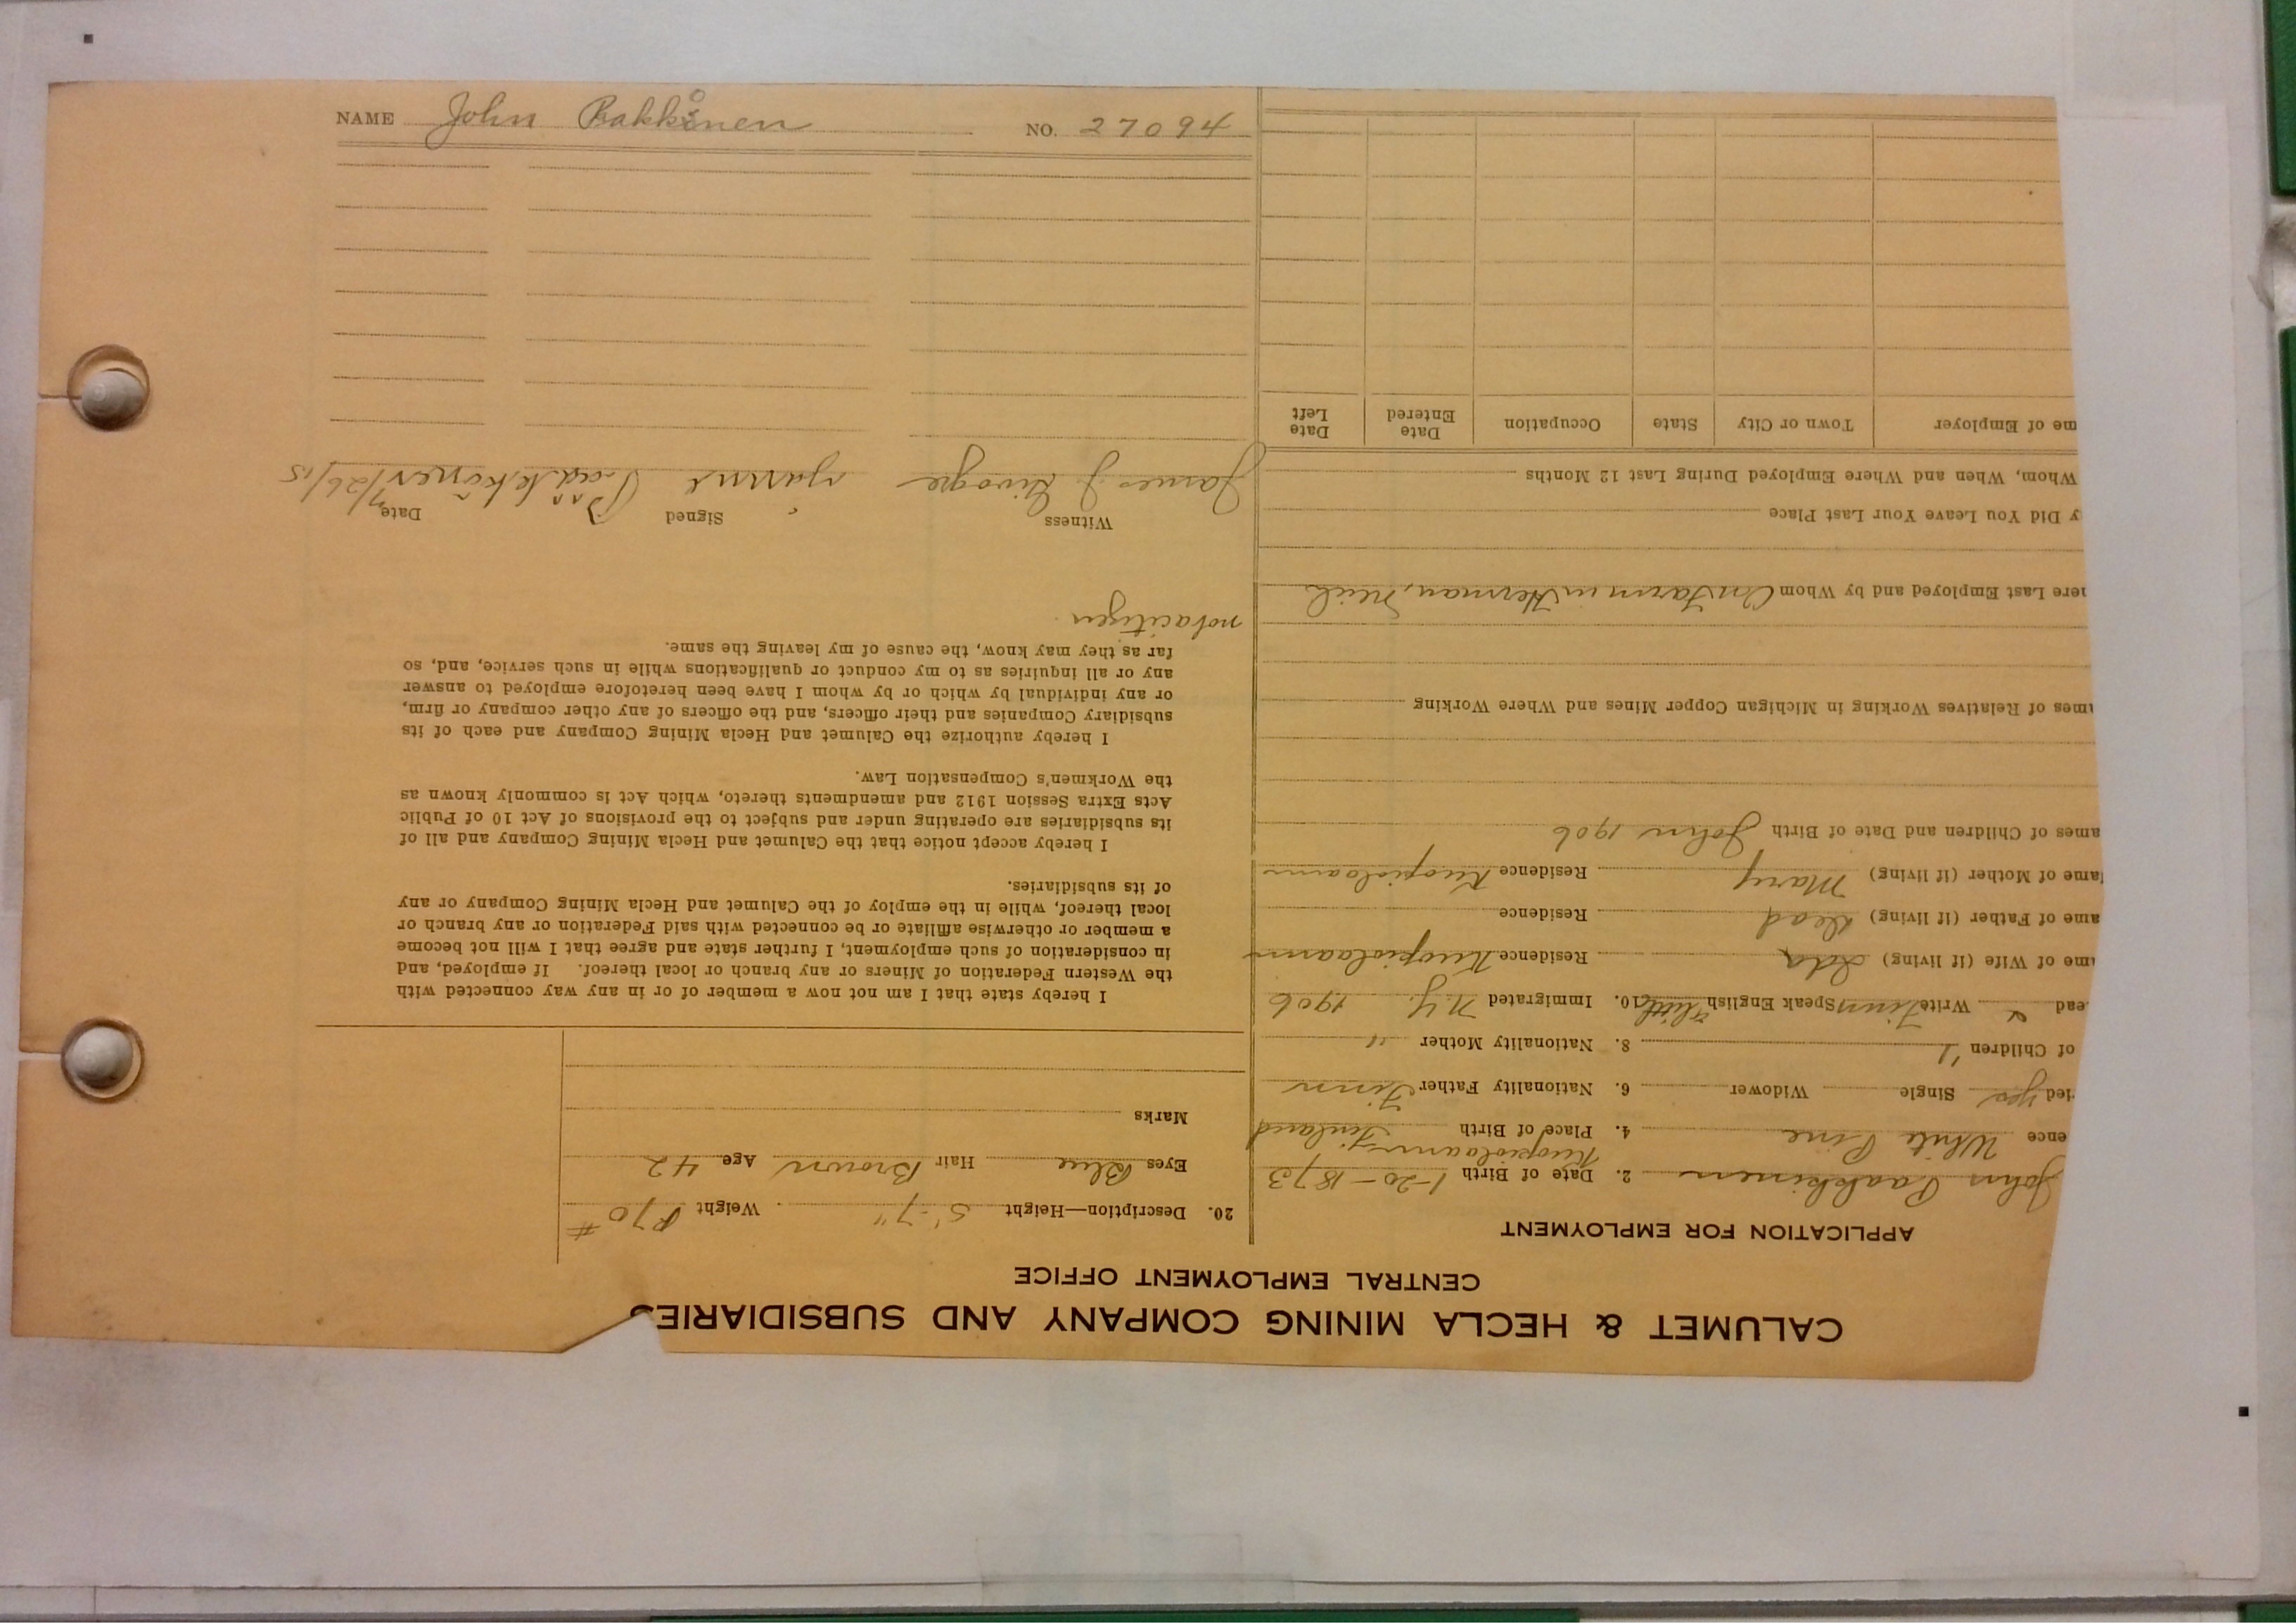 NAME John Pakkonen NO. 27094
CALUMET & HECLA MINING COMPANY AND SUBSIDIARIES
CENTRAL EMPLOYMENT OFFICE
APPLICATION FOR EMPLOYMENT
John Paakkinen 2. Date of Birth 1-20-1873
Kuopiolaani
ence White Pine 4. Place of Birth Finland
ied yes Single Widower 6. Nationality Father Finn
of Children 1 8. Nationality Mother "
ead Write Finn Speak English little 10. Immigrated N.Y. 1906
ame of Wife (if living) Ida Residence Kuopiolaani
ame of Father (if living) dead Residence
ame of Mother (if living) Mary Residence Kuopiolaani
ames of Children and Date of Birth John 1906
ames of Relatives Working in Michigan Copper Mines and Where Working
ere Last Employed and by Whom On Farm in Herman, Mich
y Did You Leave Your Last Place
Whom, When and Where Employed During Last 12 Months
me of Employer Town or City State Occupation Date Entered Date Left
20. Description—Height 5'-7" Weight 170 #
Eyes Blue Hair Brown Age 42
Marks
I hereby state that I am not now a member of or in any way connected with
the Western Federation of Miners or any branch or local thereof. If employed, and
in consideration of such employment, I further state and agree that I will not become
a member or otherwise affiliate or be connected with said Federation or any branch or
local thereof, while in the employ of the Calumet and Hecla Mining Company or any
of its subsidiaries.
I hereby accept notice that the Calumet and Hecla Mining Company and all of
its subsidiaries are operating under and subject to the provisions of Act 10 of Public
Acts Extra Session 1912 and amendments thereto, which Act is commonly known as
the Workmen's Compensation Law.
I hereby authorize the Calumet and Hecla Mining Company and each of its
subsidiary Companies and their officers, and the officers of any other company or firm,
or any individual by which or by whom I have been heretofore employed to answer
any or all inquiries as to my conduct or qualifications while in such service, and, so
far as they may know, the cause of my leaving the same.
not a citizen
Witness Signed Date
James J. Pääkkönen 7/26/15